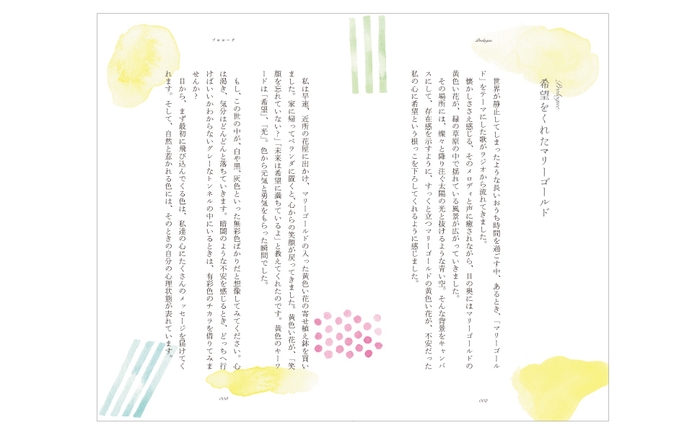 Prologue
Prologue
希望をくれたマリーゴールド
世界が静止してしまったような長いおうち時間を過ごす中、あるとき、「マリーゴール
ド」をテーマにした歌がラジオから流れてきました。
懐かしささえ感じる、そのメロディと声に癒されながら、目の奥にはマリーゴールドの
黄色い花が、緑の草原の中で揺れている風景が広がっていきました。
その場所には、燦々と降り注ぐ太陽の光と抜けるような青い空。そんな背景をキャンバ
スにして、存在感を示すように、すっくと立つマリーゴールドの黄色い花が、不安だった
私の心に希望という根っこを下ろしてくれるように感じました。
002
プロローグ
私は早速、近所の花屋に出かけ、マリーゴールドの入った黄色い花の寄せ植え鉢を買い
ました。家に帰ってベランダに置くと、心からの笑顔が戻ってきました。黄色い花が、「笑
顔を忘れていない？」「未来は希望に満ちているよ」と教えてくれたのです。黄色のキーワ
ードは「希望」、「光」。色から元気と勇気をもらった瞬間でした。
もし、この世の中が、白や黒、灰色といった無彩色ばかりだと想像してみてください。心
は渇き、気分はどんどんと落ちていきます。暗闇のような不安を感じるとき、どっちへ行
けばいいかわからないグレーなトンネルの中にいるときは、有彩色のチカラを借りてみま
せんか？
目から、まず最初に飛び込んでくる色は、私達の心にたくさんのメッセージを届けてく
れます。そして、自然と惹かれる色には、そのときの自分の心理状態が表れています。
003